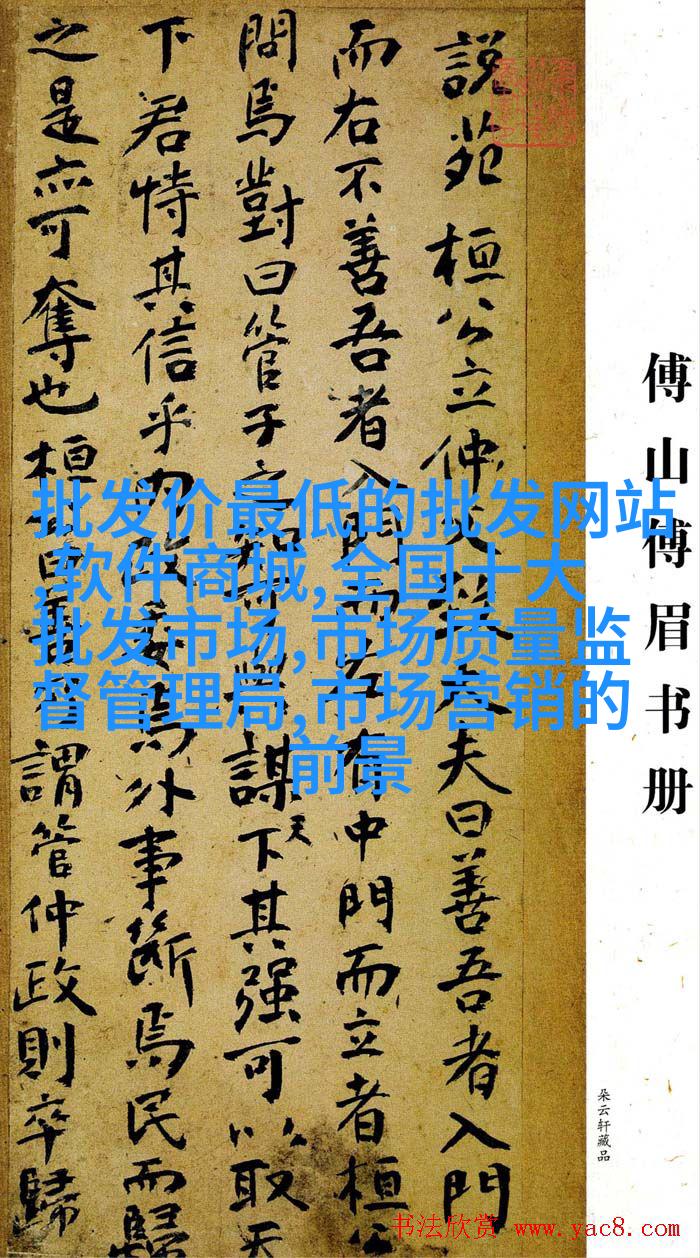 傅山傅眉书册
朵云轩藏品
説苑 桓公立仲父大夫曰善吾者入門
而右不善吾者入門而左有中門而立者桓公
問焉對曰管子之知可與謀天下其强可以取天
下君恃其信乎内政委焉外事斷焉民而歸
之是亦可奪也桓公曰善謂管仲政則卒歸
批发价最低的批发网站
,软件商城,全国十大
批发市场,市场质量监
督管理局,市场营销的
前景
书法欣赏 www.yac8.com